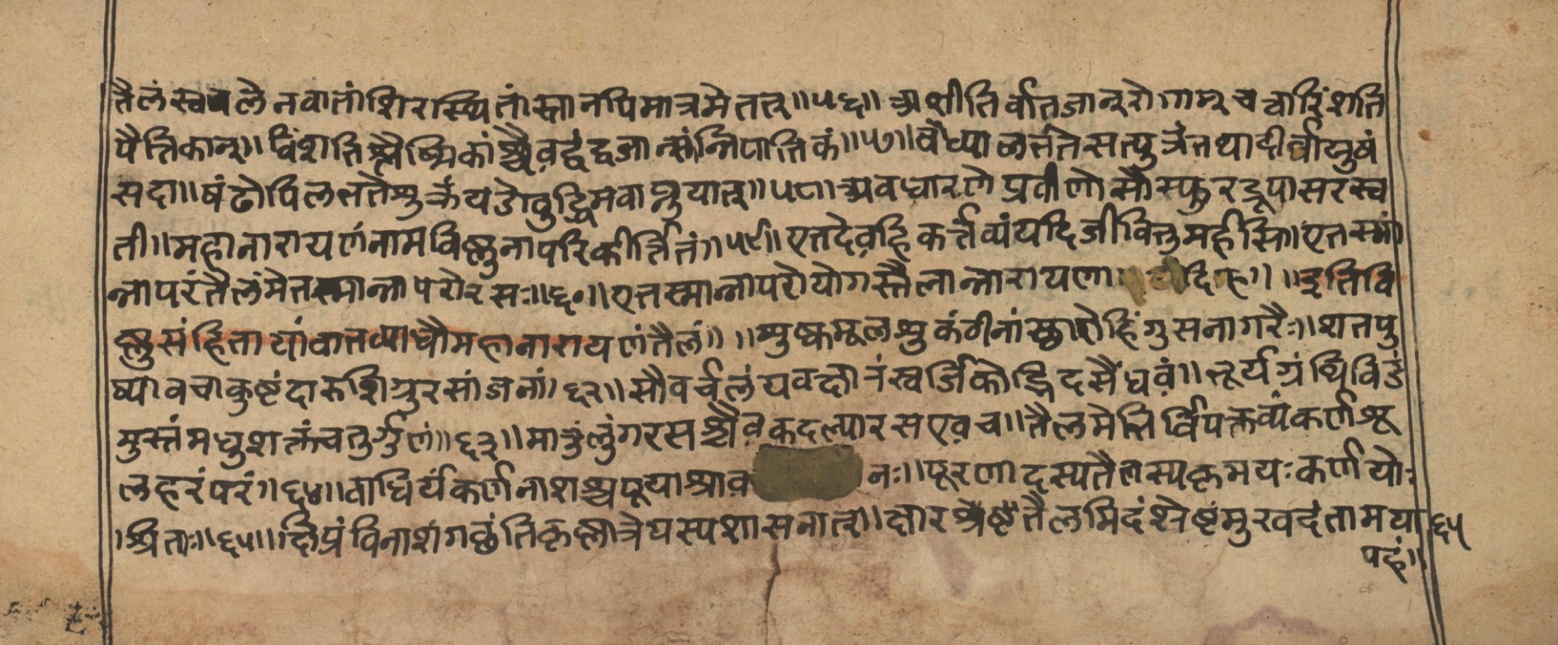 तैलं स्ववलेनवातांशिरस्थितांस्तानपिमात्रमेतत्॥५६॥ अशीतिर्वातजान्रोगान्चत्वारिंशति
पैत्तिकान्॥विंशतिश्लैष्मिकांश्चैवद्वंद्वजान्सांन्निपात्तिकं॥५७॥वंध्यालर्त्ततेसत्पुत्रंतथादीर्वायुषं
सदा॥षंढोपिलततेशुक्रंयडोवुद्धिमवाप्नुयात्॥५८॥अवधारणेप्रवीणोसौस्फुरद्रूपासरस्व
ती॥महानारायणंनामविष्णुनापरिकीर्त्तितं॥५९॥एतदेवहिकर्त्तव्यंयदिजीवितुमर्हसि॥एतस्मा
न्नापरंतैलंमेतस्मान्नापरोरसः॥६०॥एतस्मान्नापरोयोगस्तैलान्नारायणा दिह॥॥इतिवि
ष्णुसंहितायांवातव्याधौमहानारायणंतैलं॥॥शुष्कमूलशुकंठीनांक्षारोहिंगुसनागरैः॥शतपु
ष्पावचाकुष्टंदारुशिग्रुरसांजनां॥६२॥सौवर्चलंयवक्षारंस्वर्जिकोद्भिदसैंधवं॥भूर्यग्रंथिविडं
मुस्तंमधुशक्तंचतुर्गुणं॥६३॥मातुंलुंगरसश्चैवकदल्यारसएवच॥तैलमेतिर्विपक्तव्यंकर्णशू
लहरंपरं॥६४॥वाधिर्यंकर्णनाशश्चपूयाश्राव नः॥पूरणादस्यतैलस्यकृमयःकर्णयोः
श्रिताः॥६५॥क्षिप्रंविनाशंगछंतिकृष्णात्रेयस्यशासनात्॥क्षारश्रेष्टंतैलमिदंश्रेष्टंमुखदंतामया
६५
पहं॥